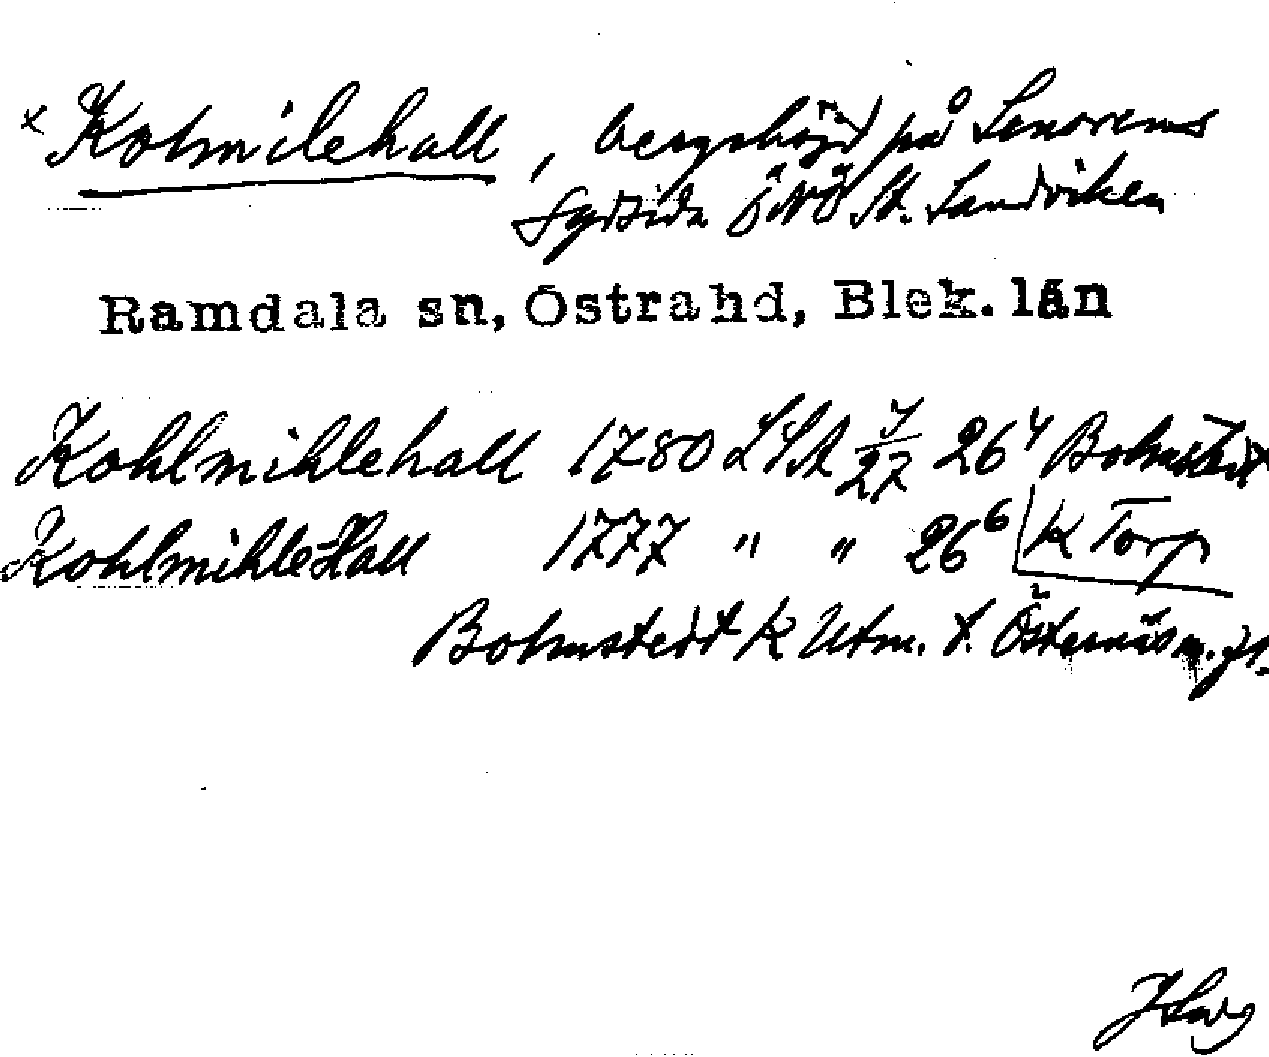 x Kolmilehall, bergshöjd på Senorens
sydsida ÖNÖ St. Sandviken
Ramdala sn, Östrahd, Blek. län
Kohlmihlehall 1780 LSA J/27 26⁴ Bohmstedt
Kohlmihle-Hall 1777 " " 26⁶ K Torp
Bohmstedt K Utm. t. Östernäs m. fl.